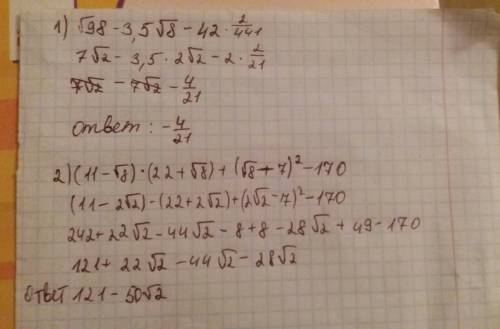 1) √98 - 3,5√8 - 42 · 2/441
7√2 - 3,5 · 2√2 - 2 · 2/21
7√2 - 7√2 - 4/21
ответ: - 4/21
2) (11 - √8) · (22 + √8) + (√8 + 7)² - 170
(11 - 2√2) - (22 + 2√2) + (2√2 - 7)² - 170
242 + 22√2 - 44√2 - 8 + 8 - 28√2 + 49 - 170
121 + 22√2 - 44√2 - 28√2
ответ 121 - 50√2